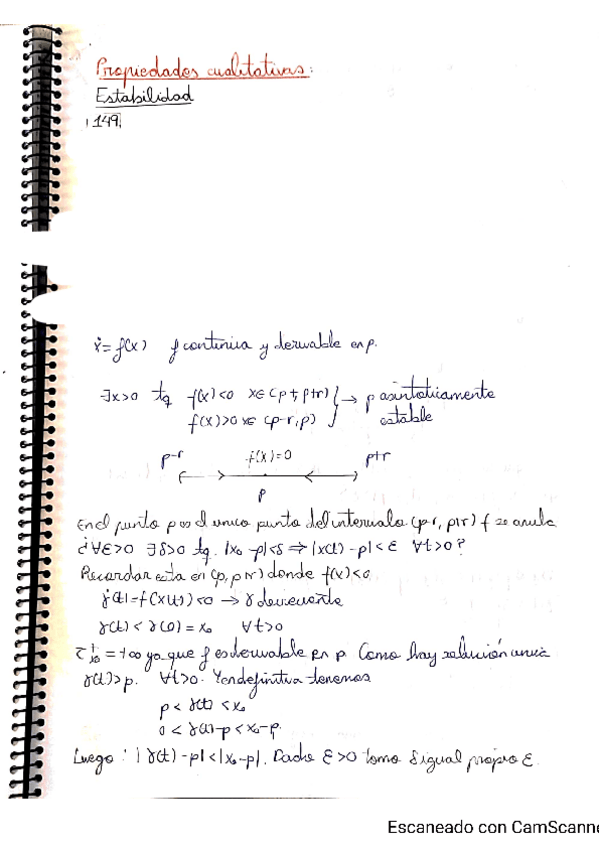 Propiedades cualitativas:
Estabilidad
149,
ẋ=f(x) f continua y derivable en p.
∃x>0 tq f(x)<0 x∈(p+, p+r) } → p asintoticamente
f(x)>0 x∈ (p-r, p) } estable
p-r f(x)=0 p+r
p
En el punto p es el unico punto del intervalo (p-r, p+r) f se anula
¿∀ε>0 ∃δ>0 tq. |x₀-p|<δ ⇒ |x(t)-p|<ε ∀t>0?
Recordar esta en (p, p+r) donde f(x)<0
γ̇(t)=f(x(t))<0 → γ decreciente
γ(t) < γ(0) = x₀ ∀t>0
τ⁺x₀ = +∞ ya que f es derivable en p. Como hay solución unica
γ(t)>p. ∀t>0. Y en definitiva tenemos
p < γ(t) < x₀
0 < γ(t)-p < x₀-p.
Luego: |γ(t)-p|<|x₀-p|. Dado ε>0 tomo δ igual propio ε.
Escaneado con CamScanne